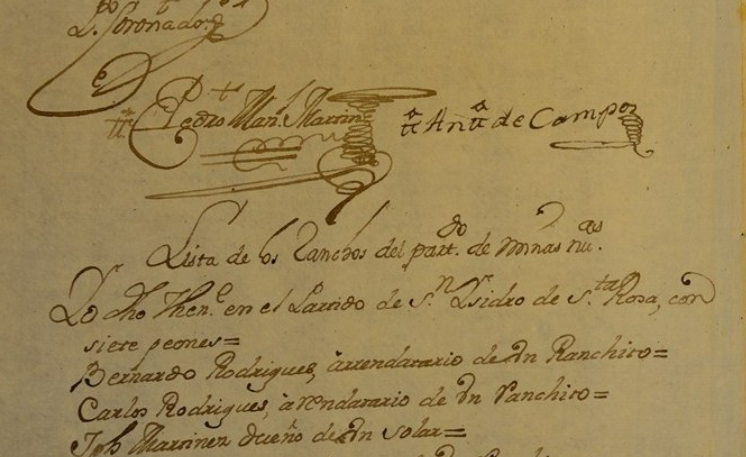 Coronado
Pedro Man. Martin
tt.º Anttº de Campoz
Lista de los Ranchos del part.do de minas nu.as
Yo dho Then.e en el Partido de S.n Ysidro de S.ta Rosa, con
siete peones=
Bernardo Rodrigues, arrendatario de Un Ranchito=
Carlos Rodrigues, arrendatario de Un Ranchito=
Jph Martinez dueño de Un solar=